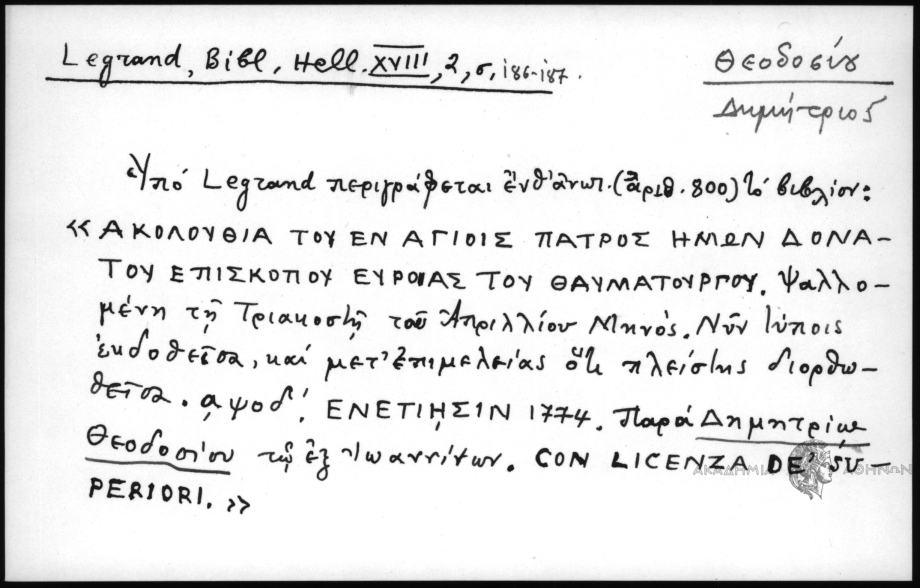 Legrand, Bibl. Hell. XVIII, 2, σ, 186-187.
Θεοδοσίου
Δημήτριος
Ὑπό Legrand περιγράφεται ἔνθ' ἀνωτ. (ἀριθ. 800) τό βιβλίον:
« ΑΚΟΛΟΥΘΙΑ ΤΟΥ ΕΝ ΑΓΙΟΙΣ ΠΑΤΡΟΣ ΗΜΩΝ ΔΟΝΑ-
ΤΟΥ ΕΠΙΣΚΟΠΟΥ ΕΥΡΟΙΑΣ ΤΟΥ ΘΑΥΜΑΤΟΥΡΓΟΥ. Ψαλλο-
μένη τῇ Τριακοστῇ τοῦ Ἀπριλλίου Μηνός. Νῦν τύποις
ἐκδοθεῖσα, καί μετ' ἐπιμελείας ὅτι πλείστης διορθω-
θεῖσα. αψοδ'. ΕΝΕΤΙΗΣΙΝ 1774. Παρά Δημητρίῳ
Θεοδοσίου τῷ ἐξ Ἰωαννίνων. CON LICENZA DE' SU-
PERIORI. »
ΑΚΑΔΗΜΙΑ ΑΘΗΝΩΝ